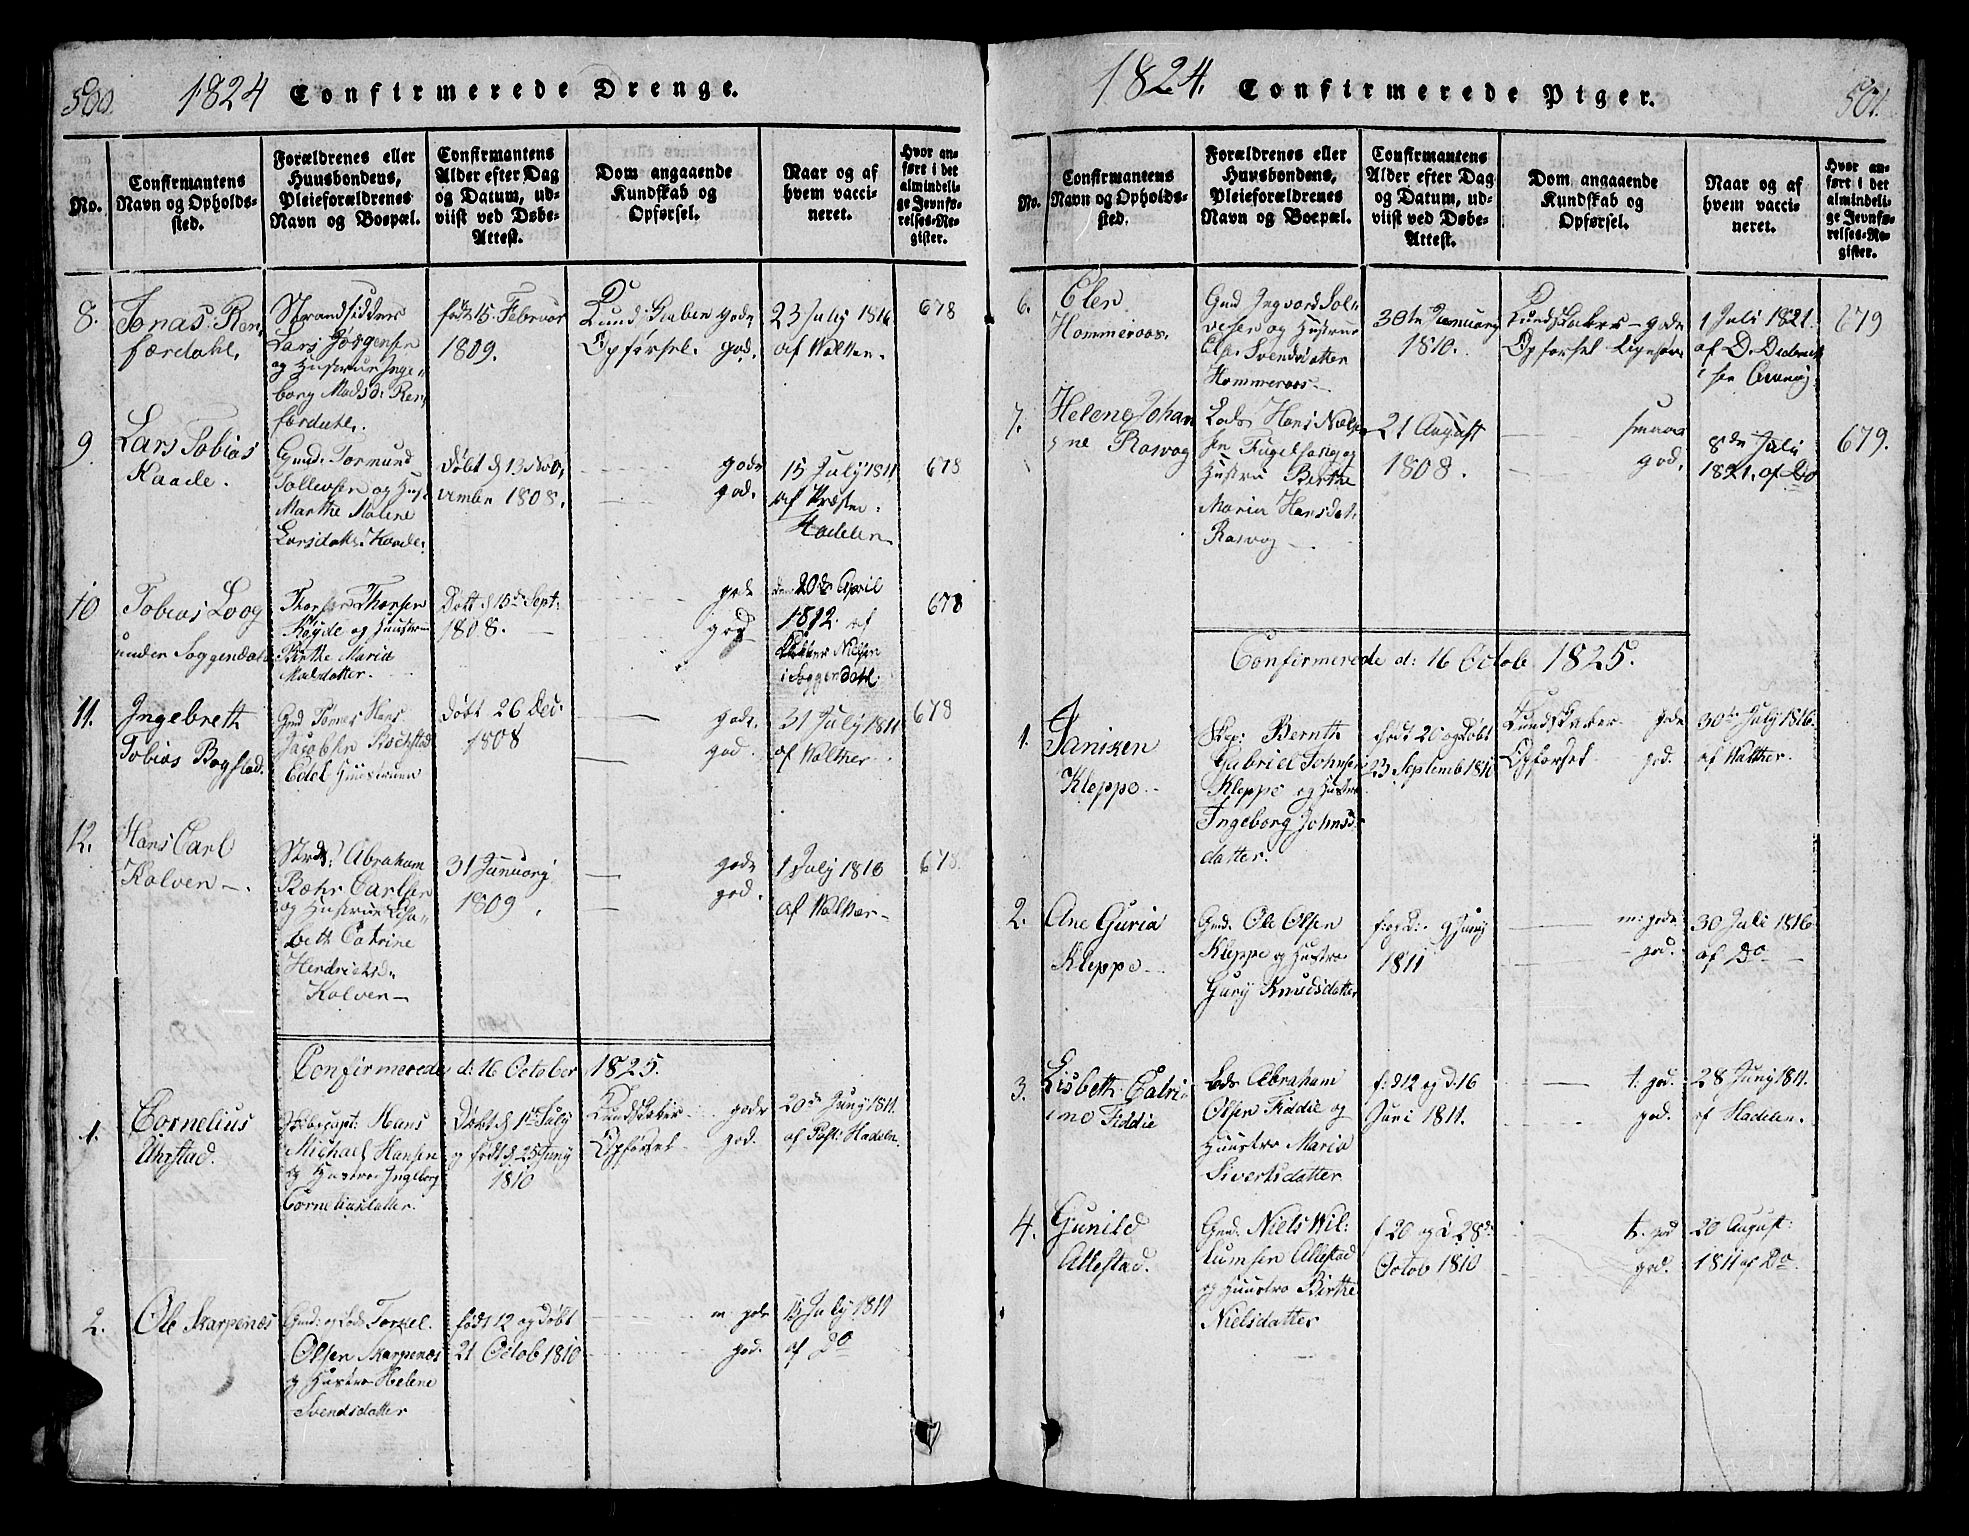 500.
1824 Confirmerede Drenge.
No.
Confirmantens
Navn og Opholds-
sted.
Forældrenes eller
Huusbondens,
Pleieforældrenes
Navn og Boepæl.
Confirmantens
Alder efter Dag
og Datum, ud-
viist ved Døbe-
Attest.
Dom angaaende
Kundskab og
Opførsel.
Naar og af
hvem vacci-
neret.
Hvor an-
ført i det
almindeli-
ge Jevnfø-
relses-Re-
gister.
8.
Jonas Ren,
færdahl,
Strandsidder
Lars Jørgensen
og Hustrue Inge-
borg Madsd: Ren,
færdahl.
født 15. Februar
1809.
Kundskaber gode
Opførsel. god.
23 July 1816
af Walther.
678
9
Lars Tobias
Kaade.
Gmd: Tormund
Tollevsen og Hust
Marthe Malene
Larsdatter Kaade.
døbt d 13 Nov,
vember 1808.
gode
god.
15 July 1811
af Præsten
Hadeln
678
10
Tobias Loog
under Soggendal
Thorsen
Røyde og Huustrue
Birthe Maria
døbt d 15de Sept:
1808.
gode
god
den 20de April
1812. af
i Soggendahl.
678
11.
Ingebreth
Tobias Bogstad.
Gmd Tønnes Hans
Jacobsen
Edel Huustruen
døbt 26 Dec.
1808
gode.
god.
31 July 1811
af Walther
678
12.
Hans Carl
Kalven -.
Strds: Abraham
Roehr Carlsen
og Hustrue Lisa-
beth Catrine
Hendrichsd.
Kalven -
31 Januarij
1809.
gode
god.
1 July 1816
af Walther -
678.
Confirmerede d: 16 October 1825.
1.
Cornelius
Uhrstad.
Hans
Michael Hansen
og Hustroe Ingeborg
Corneliusdatter.
Døbt d 1ste July
og født d. 25 Juny
1810
Kundskaber - gode
Opførsel - god.
20de Juny 1811.
af Past: Hadeln.
2.
Ole Skarpenæs
Gmd: og Lods Torkel.
Olsen Skarpenæs
og Hustroe Helene
Svendsdatter
født 12 og døbt
21 Octob 1810
m- gode
god.
15 July 1811
af Do
1824. Confirmerede Piger.
501.
No.
Confirmantens
Navn og Opholds-
sted.
Forældrenes eller
Huusbondens,
Pleieforældrenes
Navn og Boepæl.
Confirmantens
Alder efter Dag
og Datum, ud-
viist ved Døbe-
Attest.
Dom angaaende
Kundskab og
Opførsel.
Naar og af
hvem vacci-
neret.
Hvor an-
ført i det
almindeli-
ge Jevnfø-
relses-Re-
gister.
6.
Elen
Hommeraas.
Gmd Ingvord Sol-
vesen og Hustrue
Else Svendsdatter
Hommeraas -
30te Januarij
1810.
Kundskaber - gode
Opførsel
1 Juli 1821.
af D. Diderich
sen
679
7.
Helene Johan
ne Rasvog
Lods Hans Niels
sen Fugelsang og
Hustru Birthe
Maria Hansdat:
Rasvog -
21 August
1808.
smaae
god.
8de Juli
1821. af Do
679.
Confirmerede d: 16 Octob 1825.
1.
Janiken
Kleppe -
Skp: Bernth
Gabriel Johnsen
Kleppe og Hustroe
Ingeborg Johns
datter.
født 20 og døbt
23 September 1810
Kundskaber - gode
Opførsel. god.
30te July 1816
af Walther.
2.
Ane Guria
Kleppe -
Gmd. Ole Olsen
Kleppe og Hustroe
Gury Knudsdatter
f: og d: 9 Juny
1811
m: gode.
- god.
30 Juli 1816
af Do -
3.
Lisbeth Catri-
ne Fiddie
Lods Abraham
Olsen Fiddie og
Huustro Maria
Sivertsdatter
f: d 12 og d: 16
Juni 1811.
t. god.
god.
28 Juny 1811.
af Hadeln.
4.
Gunild
Allestad.
Gmd. Niels Wil-
lumsen Allestad
og Huustro Birthe
Nielsdatter
f 20 og d 28de
Octob 1810
t. god
god.
20 August
1811 af Do.